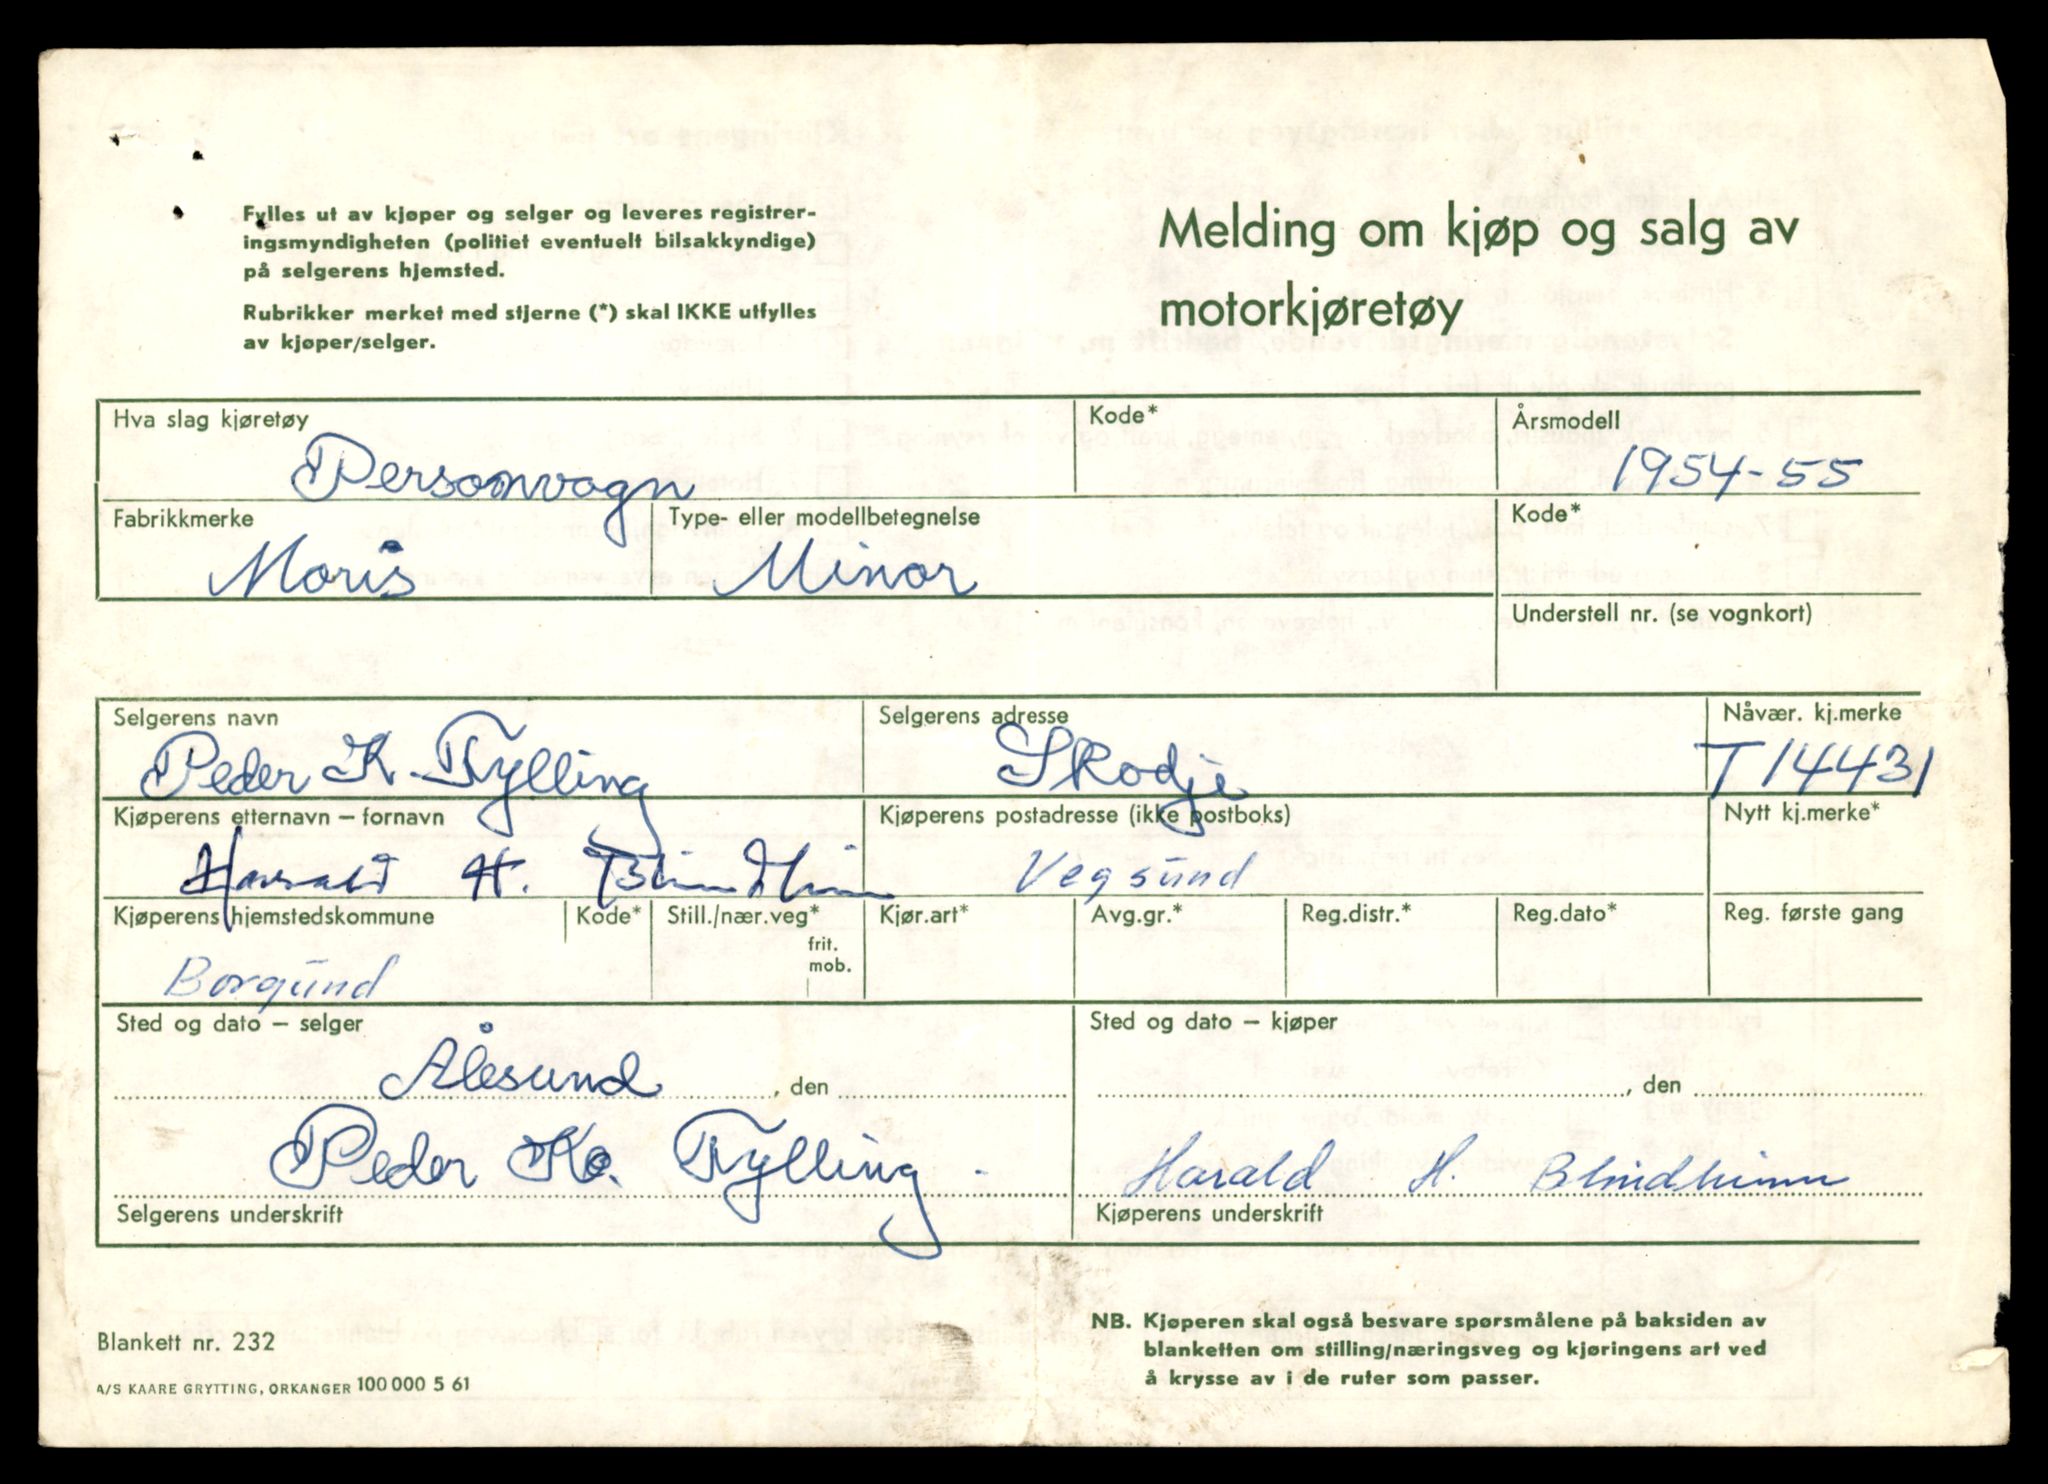 Fylles ut av kjøper og selger og leveres registrer-
ingsmyndigheten (politiet eventuelt bilsakkyndige)
på selgerens hjemsted.
Rubrikker merket med stjerne (*) skal IKKE utfylles
av kjøper/selger.
Melding om kjøp og salg av
motorkjøretøy
Hva slag kjøretøy
Personvogn
Kode*
Årsmodell
1954-55
Fabrikkmerke
Moris
Type- eller modellbetegnelse
Minor
Kode*
Understell nr. (se vognkort)
Selgerens navn
Peder K. Tylling
Selgerens adresse
Skodje
Nåvær. kj.merke
T 14431
Kjøperens etternavn – fornavn
Harald H. Blindheim
Kjøperens postadresse (ikke postboks)
Vegsund
Nytt kj.merke*
Kjøperens hjemstedskommune
Borgund
Kode*
Still./nær.veg*
frit.
mob.
Kjør.art*
Avg.gr.*
Reg.distr.*
Reg.dato*
Reg. første gang
Sted og dato – selger
Ålesund, den
Peder K. Tylling
Selgerens underskrift
Sted og dato – kjøper
, den
Harald H. Blindheim
Kjøperens underskrift
Blankett nr. 232
A/S KAARE GRYTTING, ORKANGER 100 000 5 61
NB. Kjøperen skal også besvare spørsmålene på baksiden av
blanketten om stilling/næringsveg og kjøringens art ved
å krysse av i de ruter som passer.